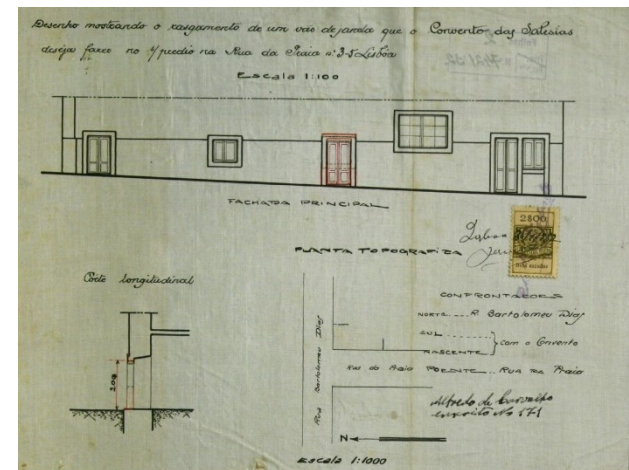 Desenho mostrando o rasgamento de um vão de janela que o Convento das Salesias
deseja fazer no predio na Rua da Praia nº 3-5 Lisbôa
Escala 1:100
FACHADA PRINCIPAL
2$00
Lisboa
PLANTA TOPOGRAFICA
Corte longitudinal
2.00
Rua Bartolomeu Dias
CONFRONTAÇÕES
NORTE .... R. Bartolomeu Dias
SUL
NASCENTE
com o Convento
POENTE .. RUA DA Praia
Rua da Praia
Alfredo de Carvalho
Nº 171
N
Escala 1:1000